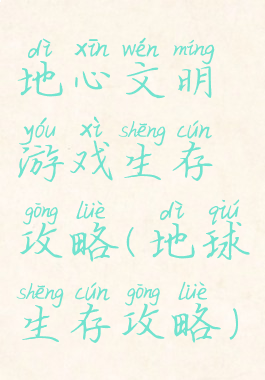 dì xīn wén míng
地心文明
yóu xì shēng cún
游戏生存
gōng lüè dì qiú
攻略(地球
shēng cún gōng lüè
生存攻略)